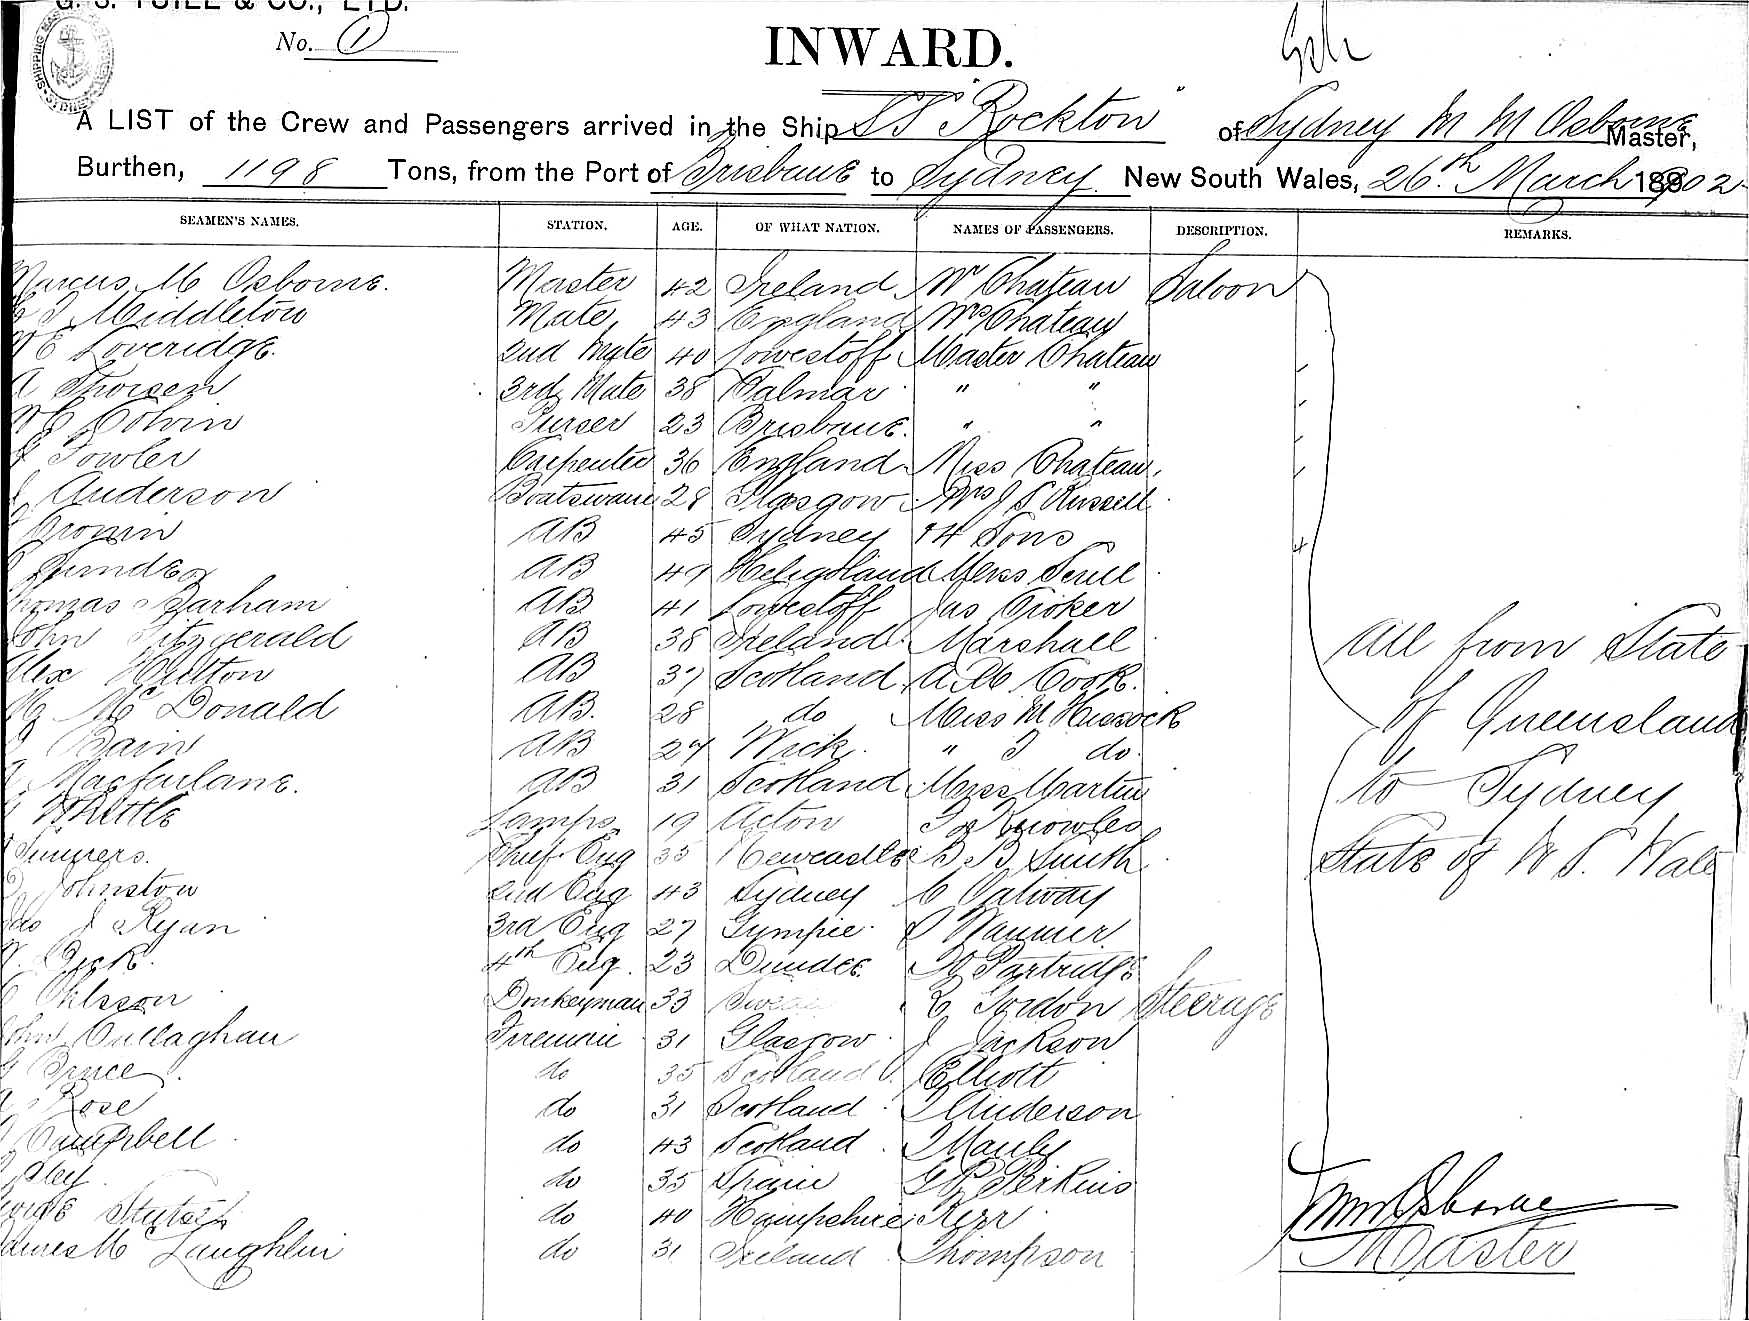 G. S. YUILL & CO., LTD.
No. 1
INWARD.
A LIST of the Crew and Passengers arrived in the Ship SS "Rockton" of Sydney M M Osborne Master,
Burthen, 1198 Tons, from the Port of Brisbane to Sydney New South Wales, 26th March 1902
SEAMEN'S NAMES. STATION. AGE. OF WHAT NATION. NAMES OF PASSENGERS. DESCRIPTION. REMARKS.
Marcus M Osborne. Master 42 Ireland Mr Chateau Saloon
Middleton Mate 43 England Mrs Chateau
E Loveridge. 2nd Mate 40 Lowestoff Master Chateau
A Thorsen 3rd Mate 38 Kalmar " "
Colvin Purser 23 Brisbane. " "
Fowler Carpenter 36 England Miss Chateau
Anderson Boatswain 28 Glasgow Mrs J S Russell
Cronin AB 45 Sydney + 4 Sons
AB 49 Heligoland
Thomas Barham AB 41 Lowestoff Jas
John Fitzgerald AB 38 Ireland Marshall
Alex Hutton AB 37 Scotland Cook.
McDonald AB. 28 do Miss M Hissock
Bain AB 27 Wick. " J do.
Macfarlane. AB 31 Scotland Martin
Whittle Lamps 19 Acton Knowles
Chief Eng 35 Newcastle B Smith
Johnston 2nd Eng 43 Sydney C Galway
J Ryan 3rd Eng 27 Gympie
4th Eng. 23 Dundee Partridge
Ohlsson Donkeyman 33 Gordon Steerage
John Cullaghan Fireman 31 Glasgow J Jackson
Bruce do 35 Scotland Elliott
Rose do 31 Scotland J Anderson
Campbell do 43 Scotland J Manly
do 35 Spain Perkins
George do 40 Hampshire Kerr
James McLaughlin do 31 Ireland Thompson
All from State
of Queensland
to Sydney
State of N S. Wales
MM Osborne
Master